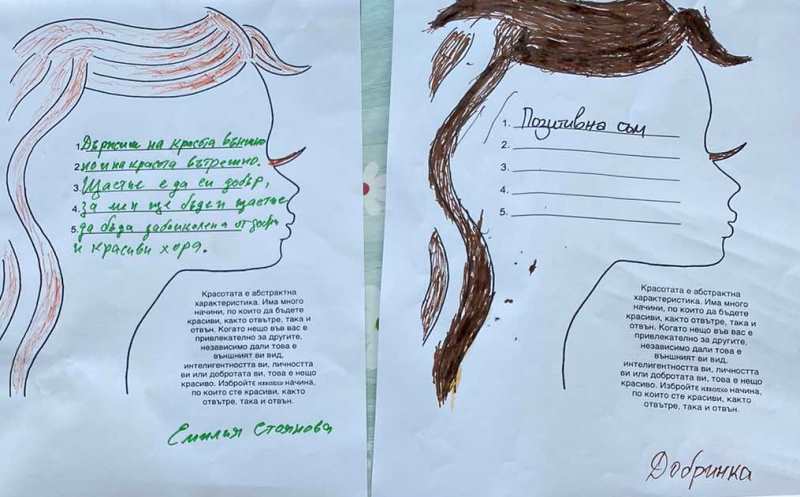 1. Държим на красота външно
2. но и на красота вътрешно.
3. Щастье е да си добър,
4. за мен ще бъде и щастье
5. да бъда заобиколена от добри
и красиви хора.
Красотата е абстрактна
характеристика. Има много
начини, по които да бъдете
красиви, както отвътре, така и
отвън. Когато нещо във вас е
привлекателно за другите,
независимо дали това е
външният ви вид,
интелигентността ви, личността
ви или добротата ви, това е нещо
красиво. Избройте няколко начина,
по които сте красиви, както
отвътре, така и отвън.
Емилия Стоянова
1. Позитивна съм
2.
3.
4.
5.
Красотата е абстрактна
характеристика. Има много
начини, по които да бъдете
красиви, както отвътре, така и
отвън. Когато нещо във вас е
привлекателно за другите,
независимо дали това е
външният ви вид,
интелигентността ви, личността
ви или добротата ви, това е нещо
красиво. Избройте няколко начина,
по които сте красиви, както
отвътре, така и отвън.
Добринка